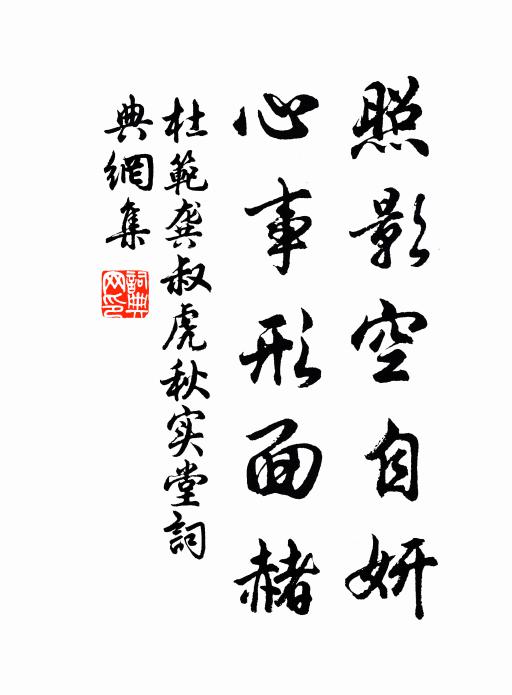 照影空自妍
心事形面赭
杜範龔叔虎秋实堂詞
典網集
詞典
网印